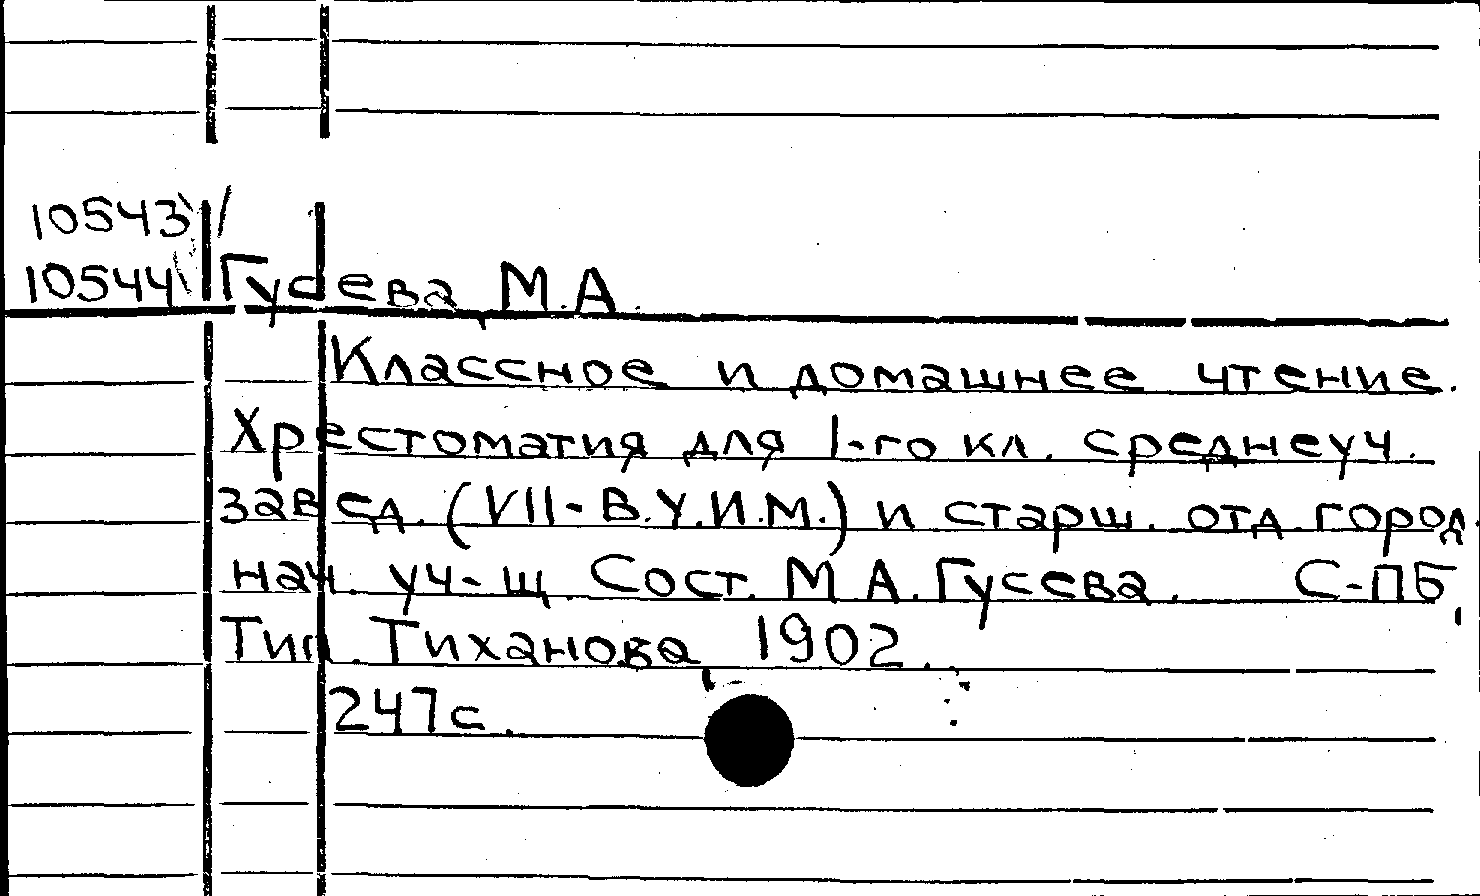 10543 /
10544 Гусева, М.А.
Классное и домашнее чтение.
Хрестоматия для 1-го кл. среднеуч.
завед. (VII-В.У.И.М.) и старш. отд. город.
нач. уч-щ. Сост. М.А. Гусева. С-ПБ,
Тип. Тиханова, 1902.
247с.